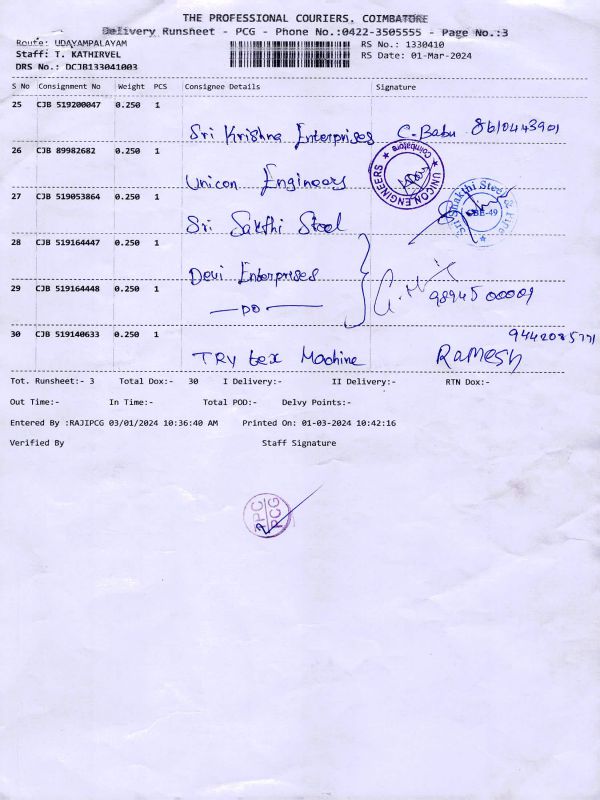 THE PROFESSIONAL COURIERS. COIMBATORE
Delivery Runsheet - PCG - Phone No.:0422-3505555 - Page No.:3
Route: UDAYAMPALAYAM RS No.: 1330410
Staff: T. KATHIRVEL RS Date: 01-Mar-2024
DRS No.: DCJB133041003
S No Consignment No Weight PCS Consignee Details Signature
25 CJB 519200047 0.250 1
Sri Krishna Enterprises C. Babu 8610443901
26 CJB 89982682 0.250 1
Unicon Engineers
UNICON ENGINEERS Coimbatore
27 CJB 519053864 0.250 1
Sri Sakthi Steel
Sri Shakthi Steel CBE-49
28 CJB 519164447 0.250 1
Devi Enterprises
29 CJB 519164448 0.250 1
-DO- 9894500009
30 CJB 519140633 0.250 1 9442085771
TRY tex Machine RAMESH
Tot. Runsheet:- 3 Total Dox:- 30 I Delivery:- II Delivery:- RTN Dox:-
Out Time:- In Time:- Total POD:- Delvy Points:-
Entered By :RAJIPCG 03/01/2024 10:36:40 AM Printed On: 01-03-2024 10:42:16
Verified By Staff Signature
PCG